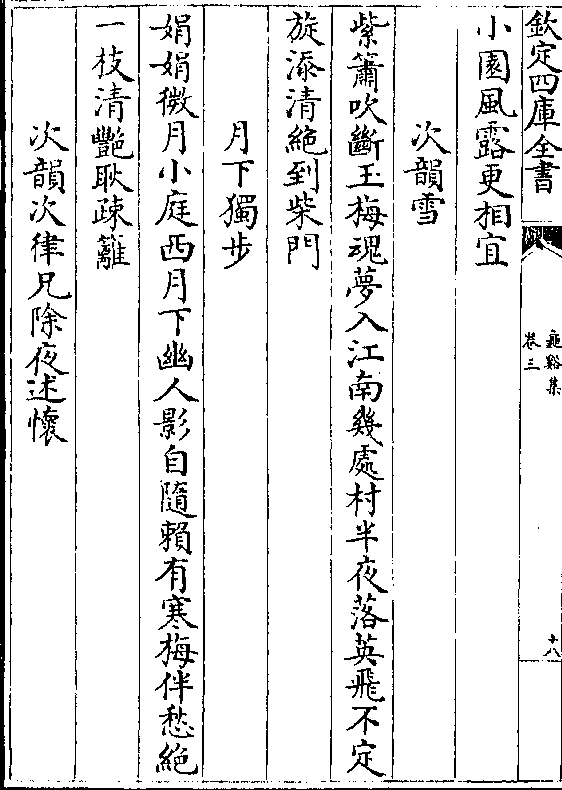 欽定四庫全書
龜谿集
卷三
十八
小園風露更相宜
次韻雪
紫簫吹斷玉梅魂夢入江南幾處村半夜落英飛不定
旋添清絶到柴門
月下獨步
娟娟微月小庭西月下幽人影自隨賴有寒梅伴愁絶
一枝清艷耿疎籬
次韻次律兄除夜述懷